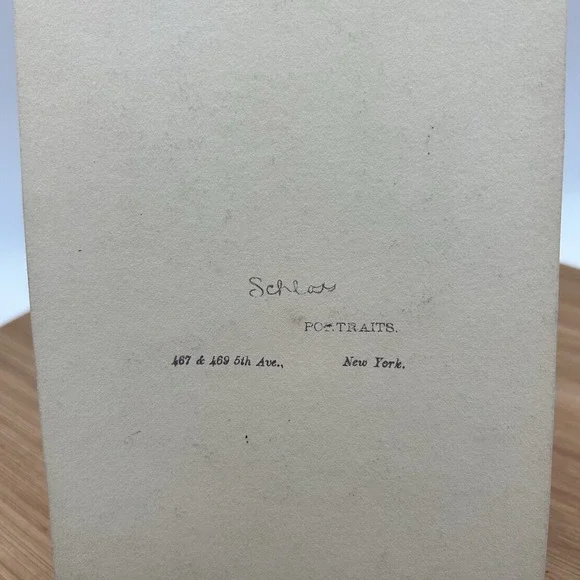 Schloss
PORTRAITS.
467 & 469 5th Ave., New York.